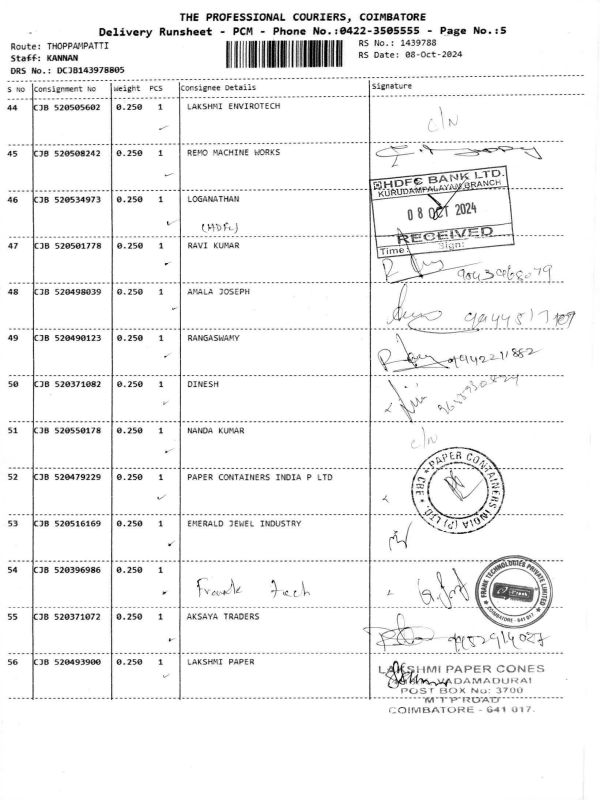 THE PROFESSIONAL COURIERS, COIMBATORE
Delivery Runsheet - PCM - Phone No.:0422-3505555 - Page No.:5
Route: THOPPAMPATTI
RS No.: 1439788
Staff: KANNAN
RS Date: 08-Oct-2024
DRS No.: DCJB143978805
S NO Consignment No Weight PCS Consignee Details Signature
44 CJB 520505602 0.250 1 LAKSHMI ENVIROTECH
C/N
45 CJB 520508242 0.250 1 REMO MACHINE WORKS
HDFC BANK LTD.
KURUDAMPALAYAM BRANCH
46 CJB 520534973 0.250 1 LOGANATHAN
08 OCT 2024
(HDFC)
RECEIVED
Time: Sign:
47 CJB 520501778 0.250 1 RAVI KUMAR
48 CJB 520498039 0.250 1 AMALA JOSEPH
49 CJB 520490123 0.250 1 RANGASWAMY
9942211882
50 CJB 520371082 0.250 1 DINESH
51 CJB 520550178 0.250 1 NANDA KUMAR
C/N
52 CJB 520479229 0.250 1 PAPER CONTAINERS INDIA P LTD
PAPER CONTAINERS INDIA (P) LTD. CBE
53 CJB 520516169 0.250 1 EMERALD JEWEL INDUSTRY
54 CJB 520396986 0.250 1
Frank Tech
FRANK TECHNOLOGIES PRIVATE LIMITED
COIMBATORE - 641 017
55 CJB 520371072 0.250 1 AKSAYA TRADERS
56 CJB 520493900 0.250 1 LAKSHMI PAPER
LAKSHMI PAPER CONES
VADAMADURAI
POST BOX No: 3700
M T P ROAD
COIMBATORE - 641 017.